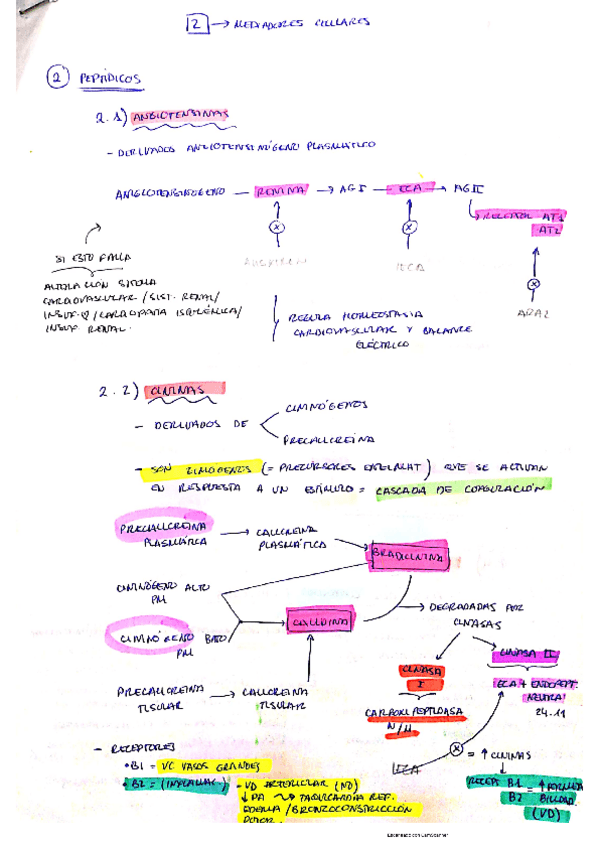 2 → MEDIADORES CELULARES
2 PEPTÍDICOS
2.1) ANGIOTENSINAS
- DERIVADOS ANGIOTENSINÓGENO PLASMÁTICO
ANGIOTENSINOGENO — RENINA → AGI — ECA → AGII
RECEPTOR AT1
AT2
SI ESTO FALLA
ALISKIREN
IECA
ARA2
ALTERACIÓN SISTEMA
CARDIOVASCULAR / SIST. RENAL /
INSUF. / CARDIOPATIA ISQUÉMICA /
INSUF. RENAL.
REGULA HOMEOSTASIA
CARDIOVASCULAR Y BALANCE
ELÉCTRICO
2.2) CININAS
- DERIVADOS DE
CININÓGENOS
PRECALICREINA
- SON ZIMÓGENOS (= PRECURSORES ENZIMAT) QUE SE ACTIVAN
EN RESPUESTA A UN ESTÍMULO = CASCADA DE COAGULACIÓN
PRECALICREINA
PLASMÁTICA
→ CALICREINA
PLASMÁTICA
BRADICININA
CININÓGENO ALTO
PM
CALIDINA
→ DEGRADADAS POR
CINASAS
CININÓGENO BAJO
PM
CINASA
I
CINASA II
CARBOXI PEPTIDASA
N/M
ECA + ENDOPEPT.
NEUTRA
24.11
PRECALICREINA
TISULAR
→ CALICREINA
TISULAR
- RECEPTORES
• B1 = VC VASOS GRANDES
• B2 = (INFLAMAC.)
- VD ARTERIOLAR (NO)
↓ PA ↝ TAQUICARDIA REF.
EDEMA / BRONCOCONSTRICCIÓN
DOLOR.
IECA
x = ↑ CININAS
RECEPT B1
B2
(VD)